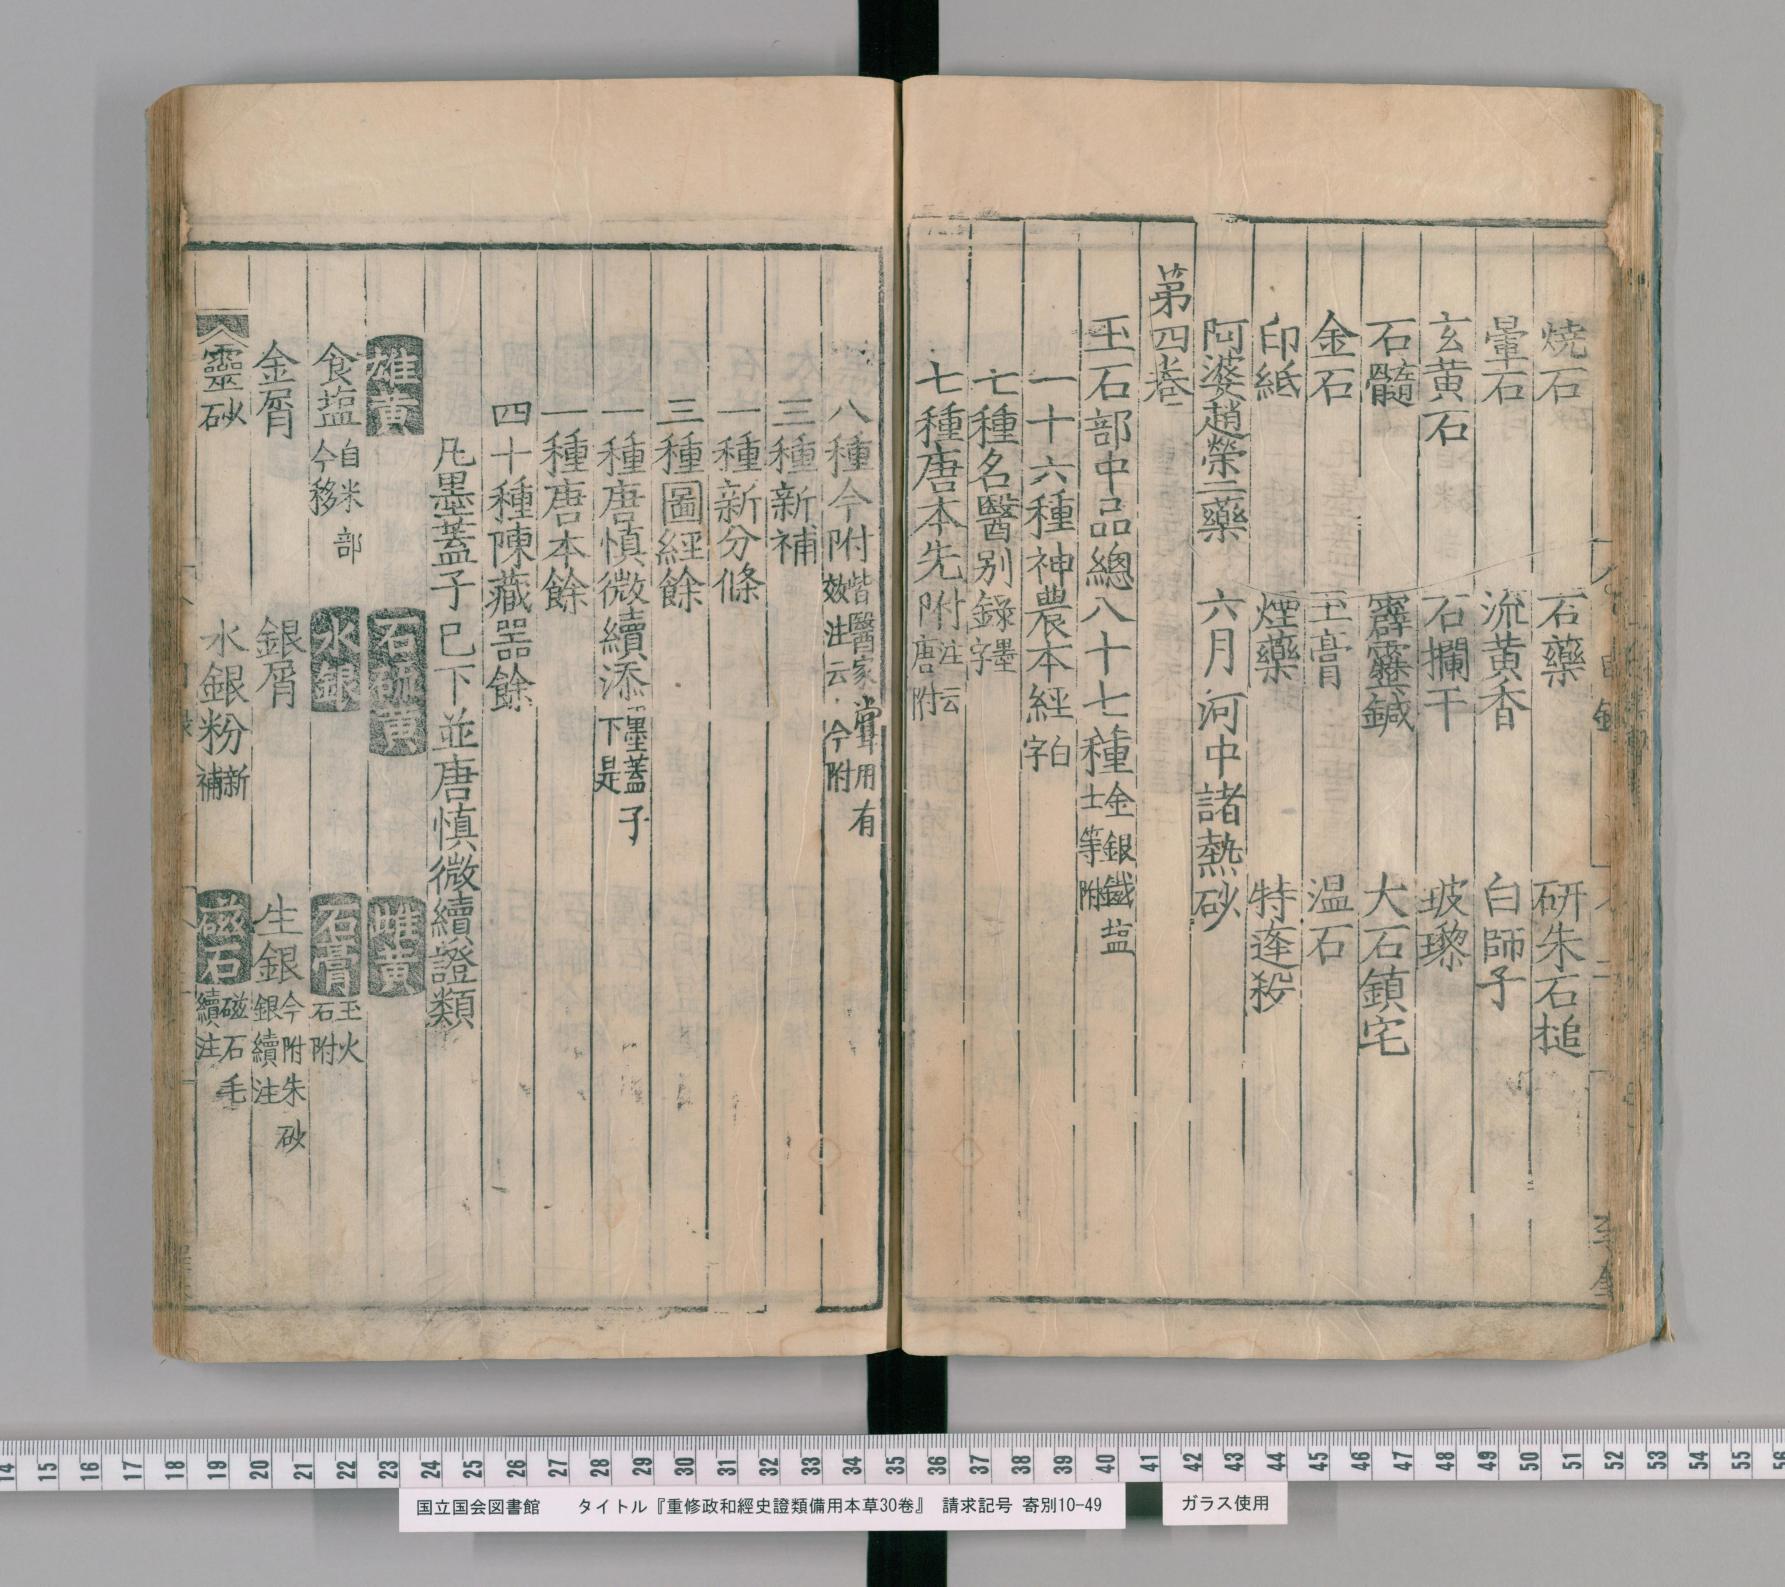 燒石 石藥 研朱石槌
暈石 流黄香 白師子
玄黄石 石欄干 玻瓈
石髓 霹靂鍼 大石鎮宅
金石 玉膏 温石
印紙 煙藥 特蓬殺
阿婆趙榮二藥 六月河中諸熱砂
第四卷
玉石部中品總八十七種金銀鐵塩土等附
一十六種神農本經白字
七種名醫别錄墨字
七種唐本先附注云唐附
八種今附皆醫家嘗用有效注云今附
三種新補
一種新分條
三種圖經餘
一種唐慎微續添墨蓋子下是
一種唐本餘
四十種陳藏噐餘
凡墨蓋子已下並唐慎微續證類
雄黄 石硫黄 雌黄
食塩自米部今移 水銀 石膏玉火石附
金屑 銀屑 生銀今附朱砂銀續注
靈砂 水銀粉新補 磁石磁石毛續注
14 15 16 17 18 19 20 21 22 23 24 25 26 27 28 29 30 31 32 33 34 35 36 37 38 39 40 41 42 43 44 45 46 47 48 49 50 51 52 53 54 55 56
国立国会図書館 タイトル『重修政和經史證類備用本草30卷』 請求記号 寄別10-49
ガラス使用